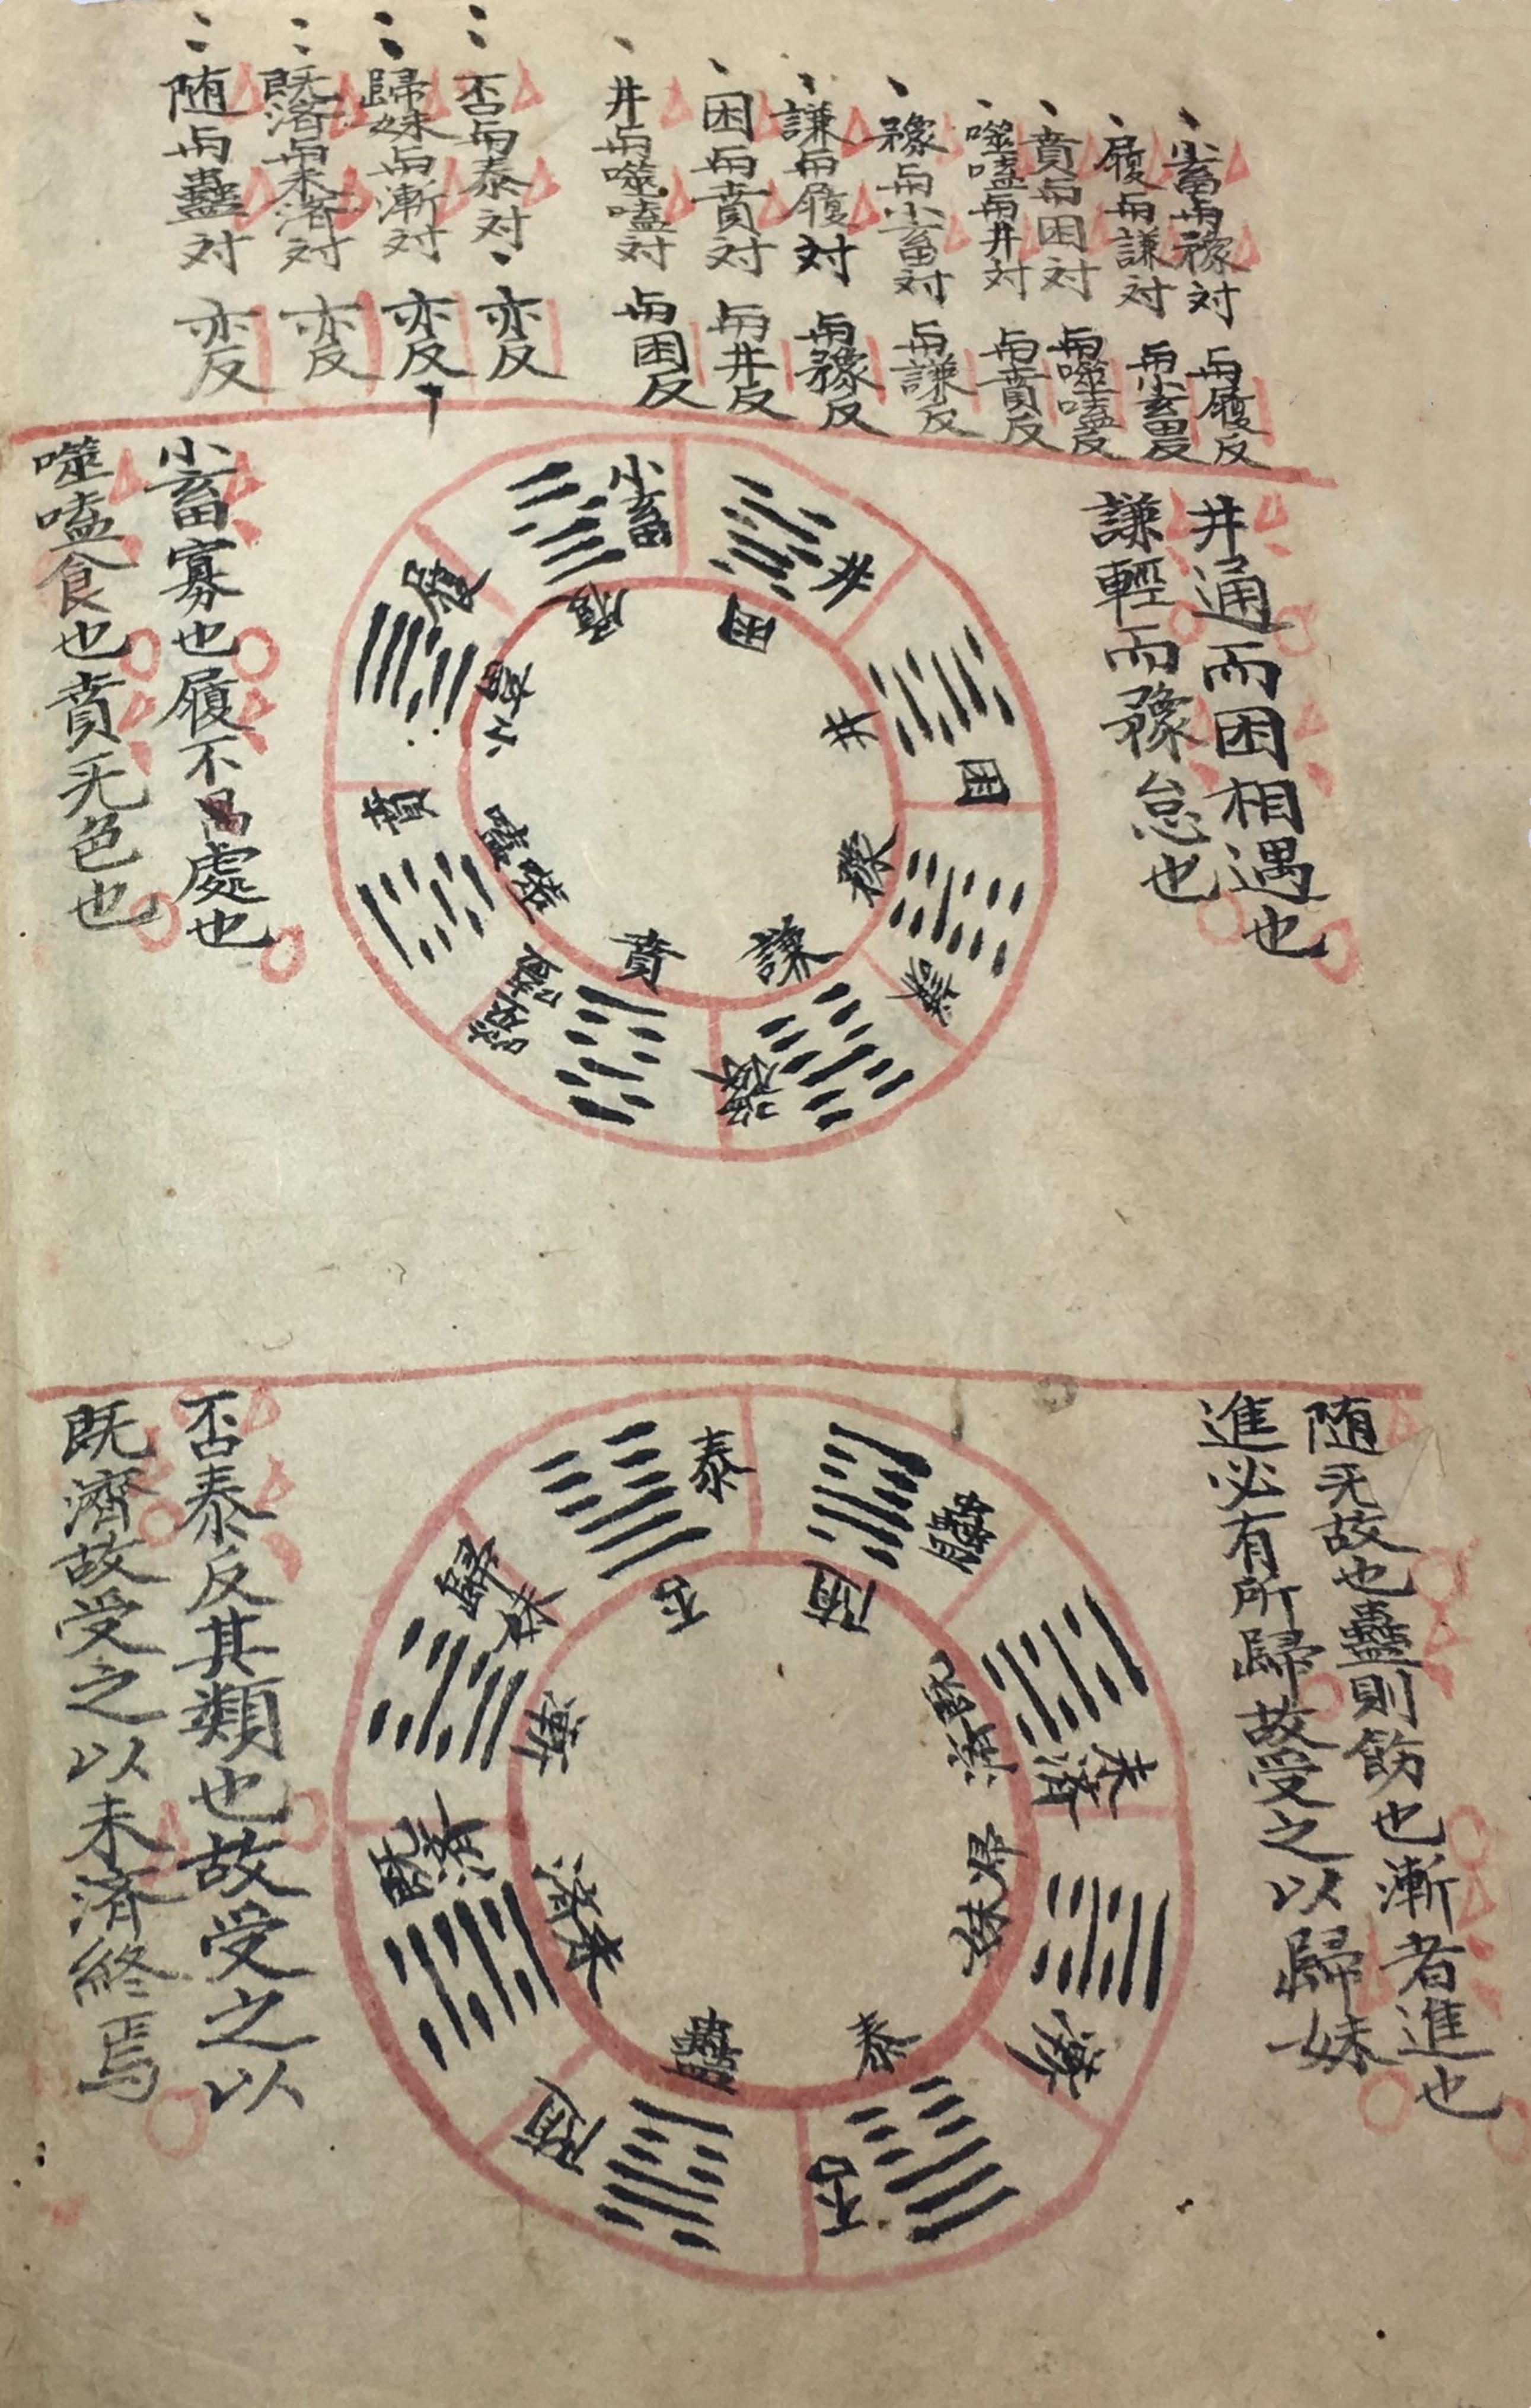 小畜与豫対 与履反
履与謙対 与小畜反
賁与困対 与噬嗑反
噬嗑与井対 与賁反
豫与小畜対 与謙反
謙与履対 与豫反
困与賁対 与井反
井与噬嗑対 与困反
否与泰対 亦反
歸妹与漸対 亦反
既済与未済対 亦反
随与蠱対 亦反
井通而困相遇也
謙輕而豫怠也
小畜
履
井
困
困
井
謙
豫
豫
謙
噬嗑
賁
賁
噬嗑
履
小畜
小畜寡也履不處也
噬嗑食也賁无色也
随无故也蠱則飭也漸者進也
進必有所歸故受之以歸妹
泰
否
蠱
随
未済
既済
漸
歸妹
否
泰
随
蠱
既済
未済
歸妹
漸
否泰反其類也故受之以
既濟故受之以未済終焉